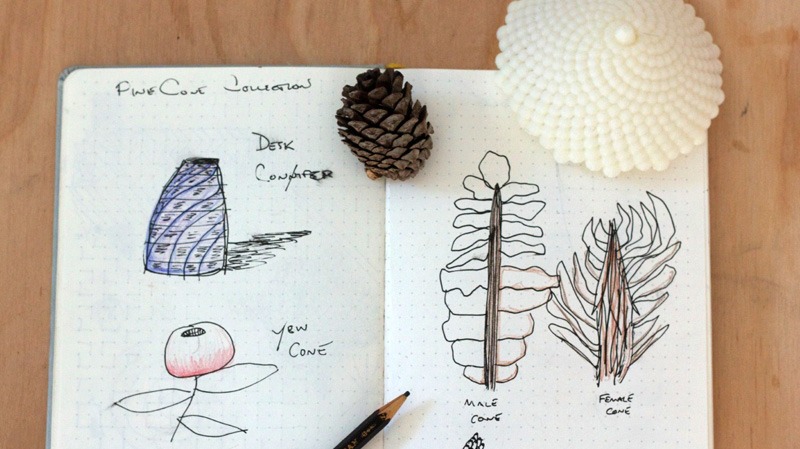 PineCone Collection
Desk
Connifer
Yew
Cone
Male
Cone
Female
Cone